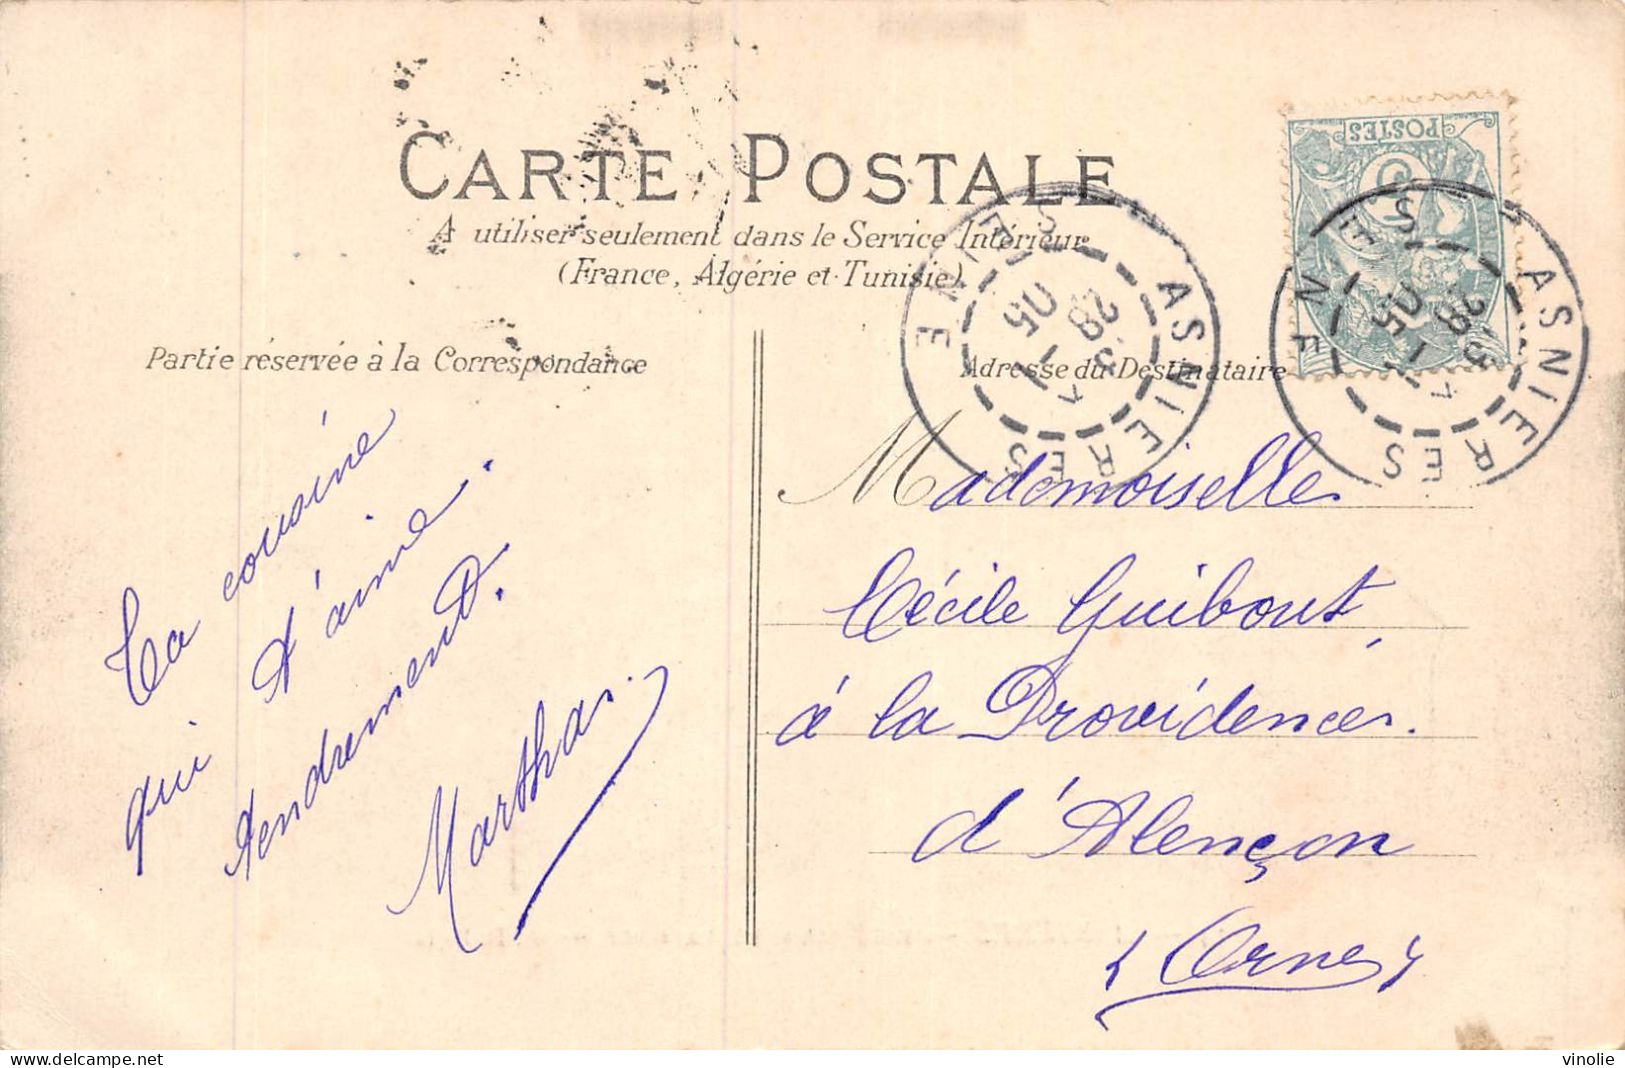 CARTE POSTALE
A utiliser seulement dans le Service Intérieur
(France, Algérie et Tunisie)
Partie réservée à la Correspondance
Adresse du Destinataire
POSTES
5
ASNIERES
SEINE
28
05
ASNIERES
SEINE
28
05
Ta cousine
qui t'aime
tendrement.
Martha
Mademoiselle
Cécile Guibout,
à la Providence.
d'Alençon
(Orne)
delcampe.net
vinolie